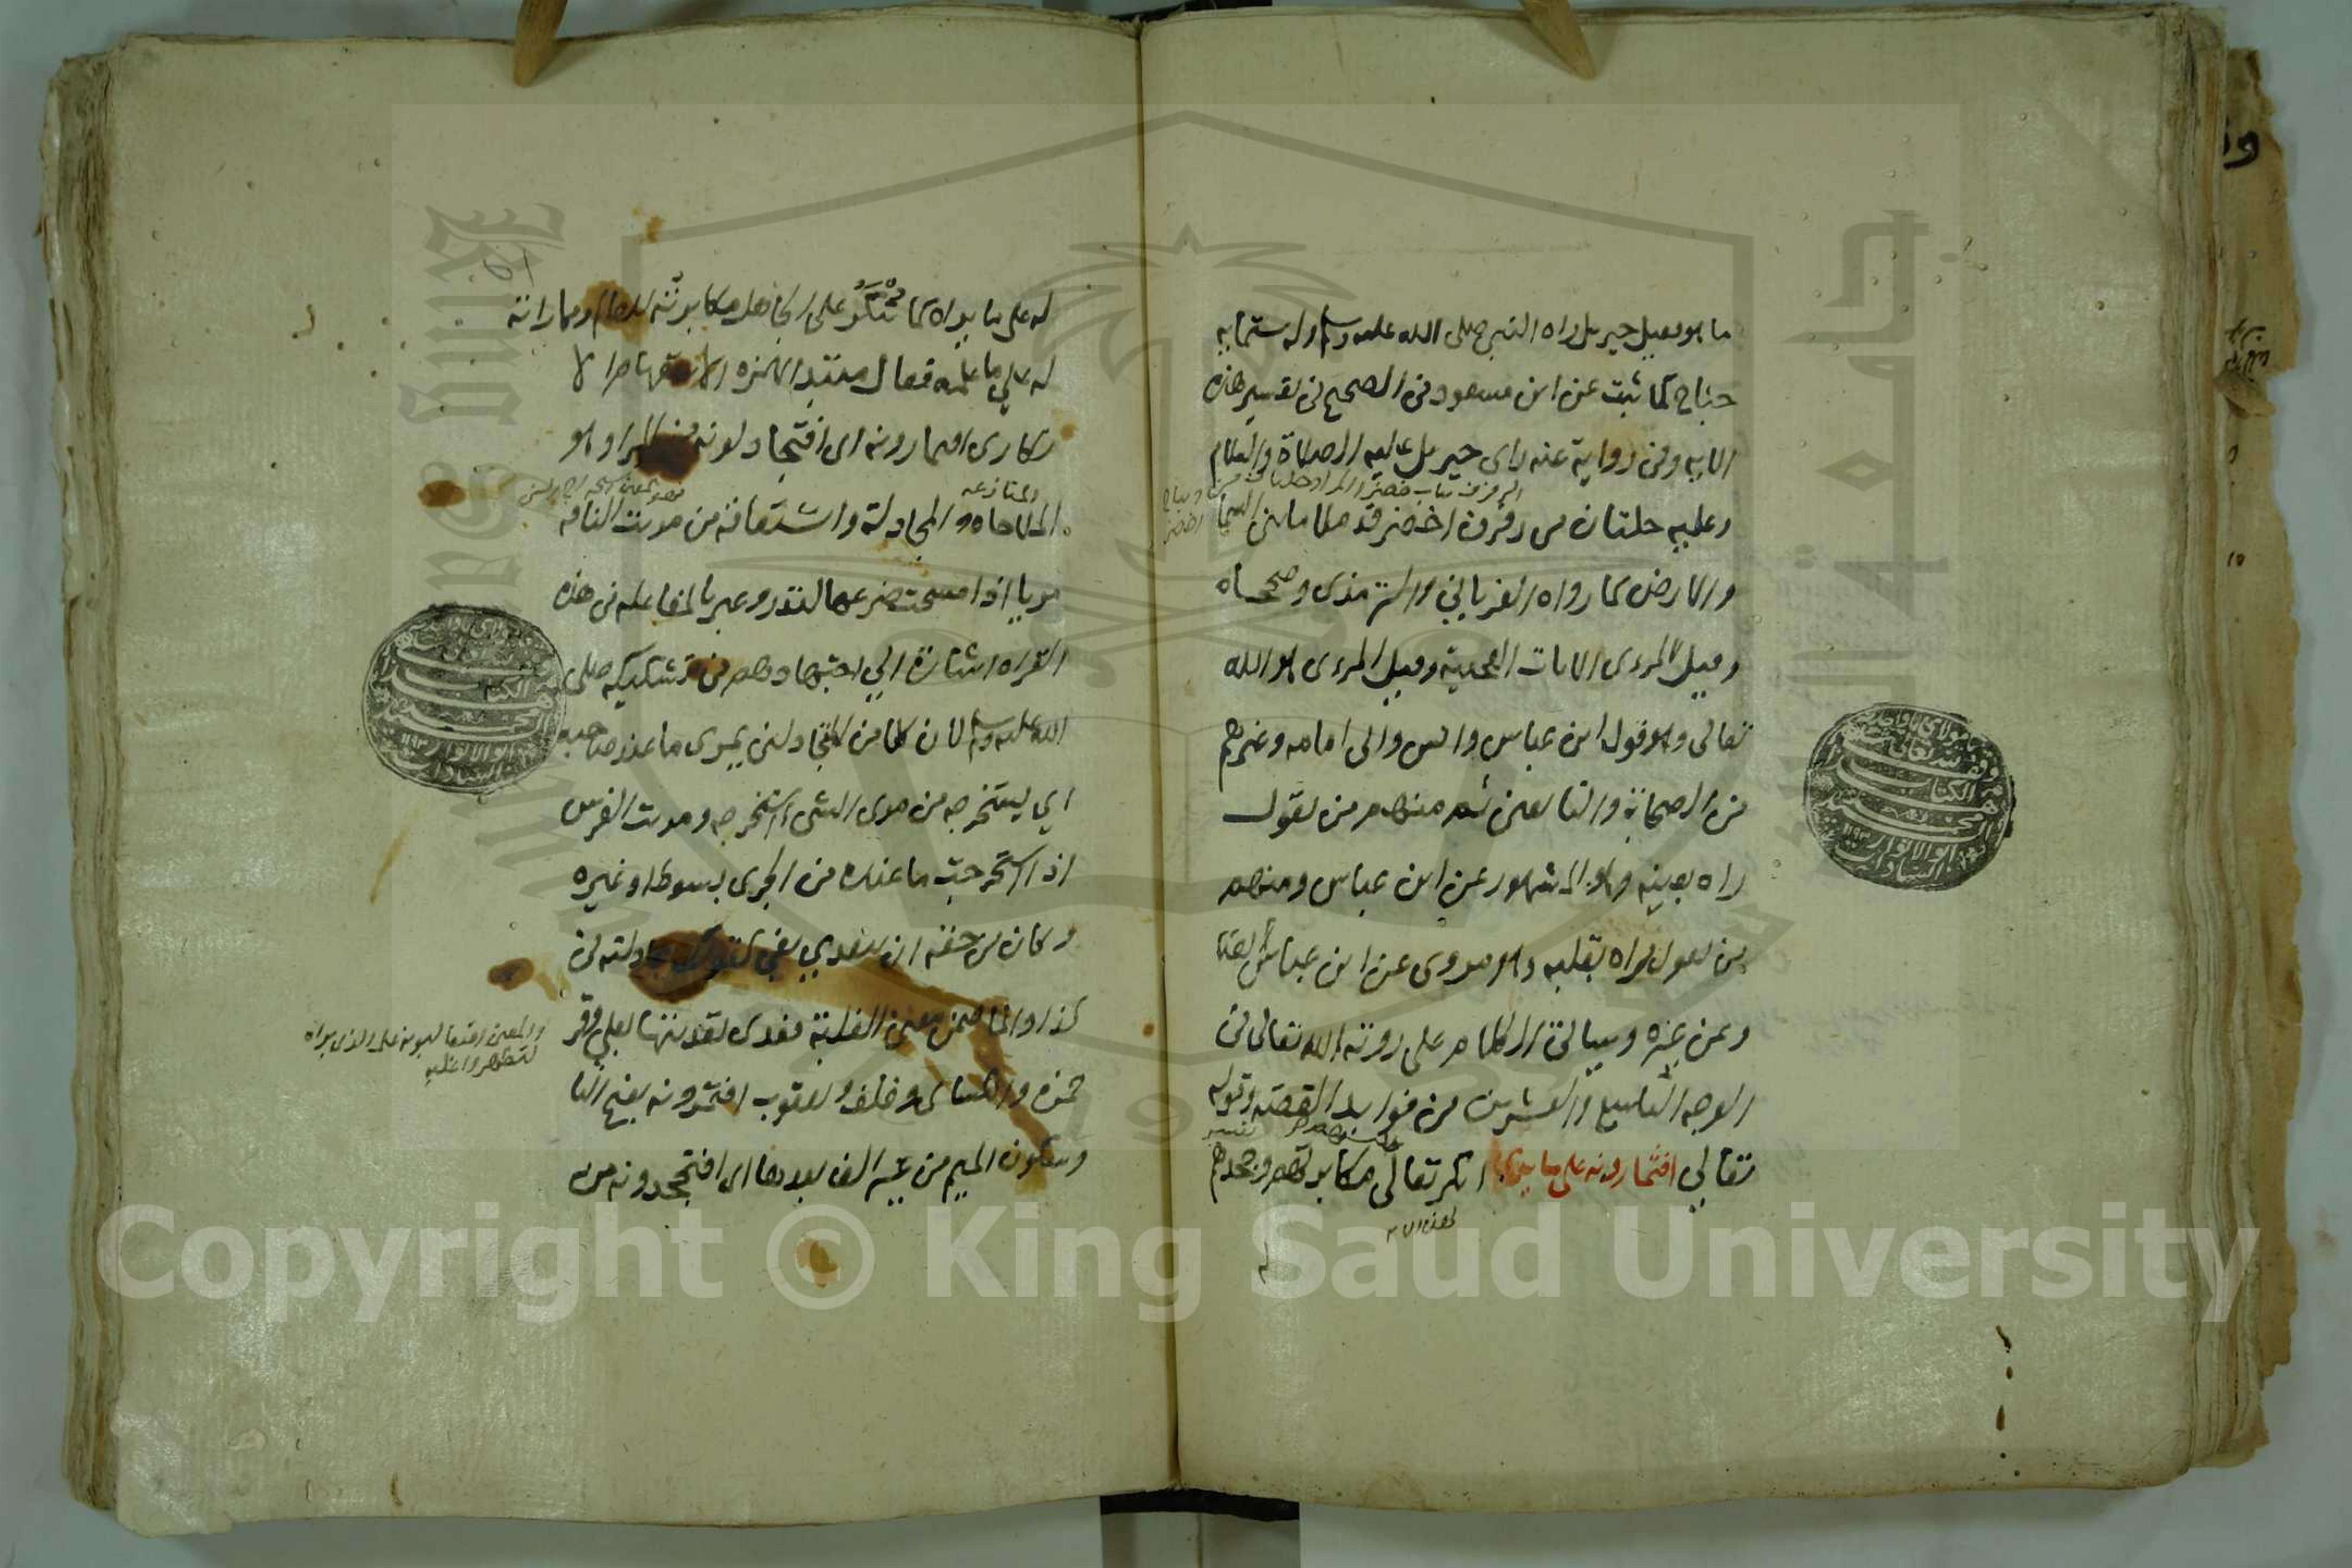 ما هو فقيل جبريل راه النبي صلى الله عليه وسلم وله ستماية
جناح كما ثبت عن ابن مسعود في الصحيح في تفسير هذه
الايه وفي رواية عنه راى جبريل عليه الصلاة والسلام
وعليه حلتان من رفرف اخضر قد ملا ما بين السما
والارض كما رواه الفريابي والترمذي وصححاه
وقيل المرءى الايات العجيبة وقيل المرءى هو الله
تعالى وهو قول ابن عباس وانس وابي امامه وغيرهم
من الصحابة والتابعين ثم منهم من يقول
راه بعينه وهو المشهور عن ابن عباس ومنهم
من يقول راه بقلبه وهو مروى عن ابن عباس ايضا
وعن غيره وسياتي الكلام على روية الله تعالى في
الوجه التاسع والعشرين من فوايد القصة وقوله
تعالي افتمارونه على ما يرى انكر تعالى مكابرتهم وجحدهم
له على ما يراه كما تنكر على الجاهل مكابرته للعالم ومماراته
له على ما علمه فقال مبتديا بهمزه الاستفهام الا
نكارى افتمارونه اى افتجادلونه من المرا وهو
المنازعه
الملاحاه والمجادلة واشتقاقه من مريت الناقه
مريا اذا مسحت ضرعها لتدر وعبر بالمفاعله في هذه
القراه اشارة الي اجتهادهم في تشكيكه صلى
الله عليه وسلم لان كلا من المتجادلين يمرى ما عند صاحبه
اي يستخرجه من مرى الشى استخرجه ومريت الفرس
اذا استخرجت ما عنده من الجرى بسوط او غيره
وكان من حقه ان يتعدي بفي كقولك جادلته في
كذا وانما ضمن معنى الغلبة فعدى تعديتها بعلي وقر
حمزه والكسائى وخلف ويعقوب افتمرونه بفتح التا
وسكون الميم من غير الف بعدها اى افتجحدونه من
والمعنى افتغالبونه على الذى يراه
لتظهروا عليه
Copyright © King Saud University